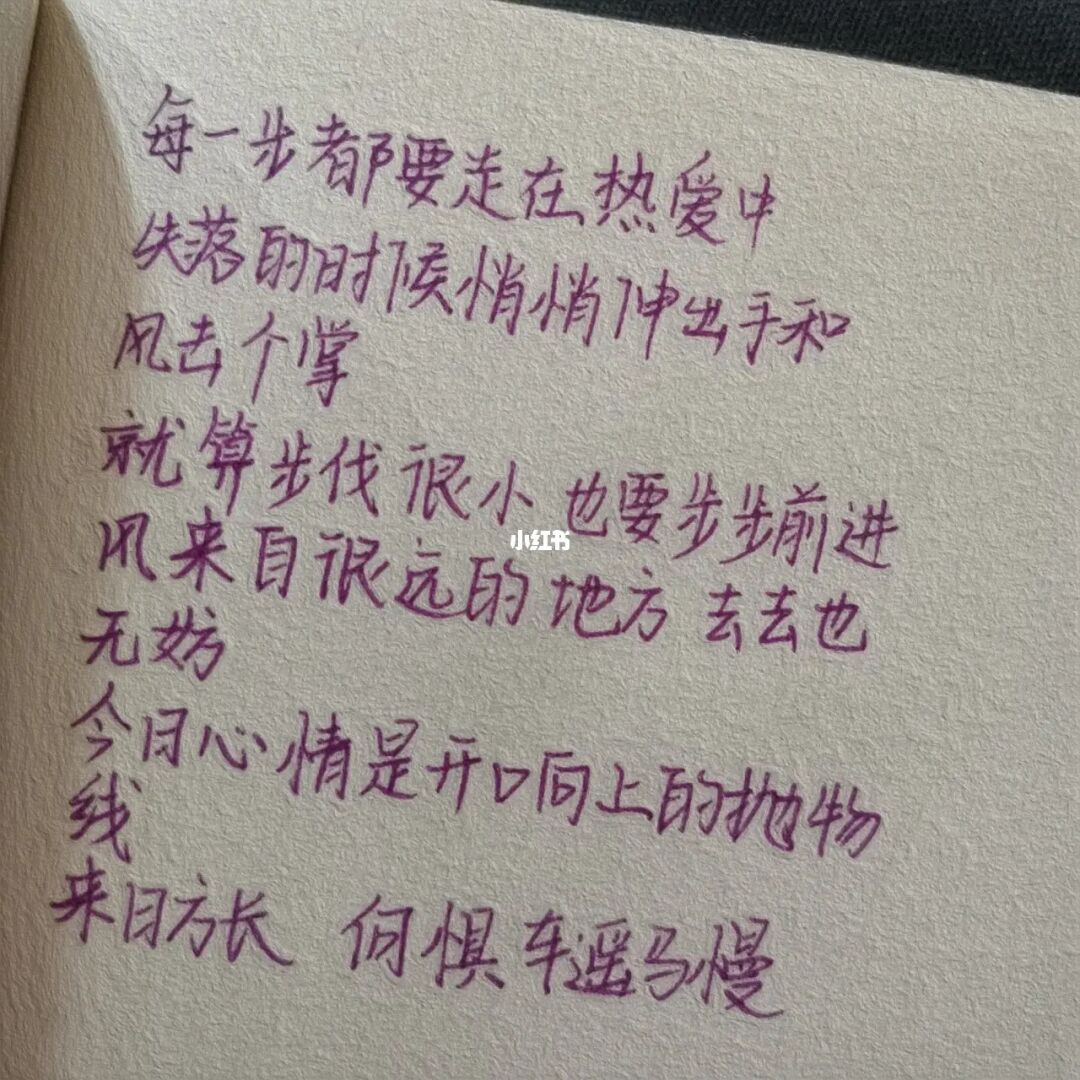 每一步都要走在热爱中
失落的时候悄悄伸出手和
风击个掌
就算步伐很小 也要步步前进
小红书
风来自很远的地方 去去也
无妨
今日心情是开口向上的抛物
线
来日方长 何惧车遥马慢